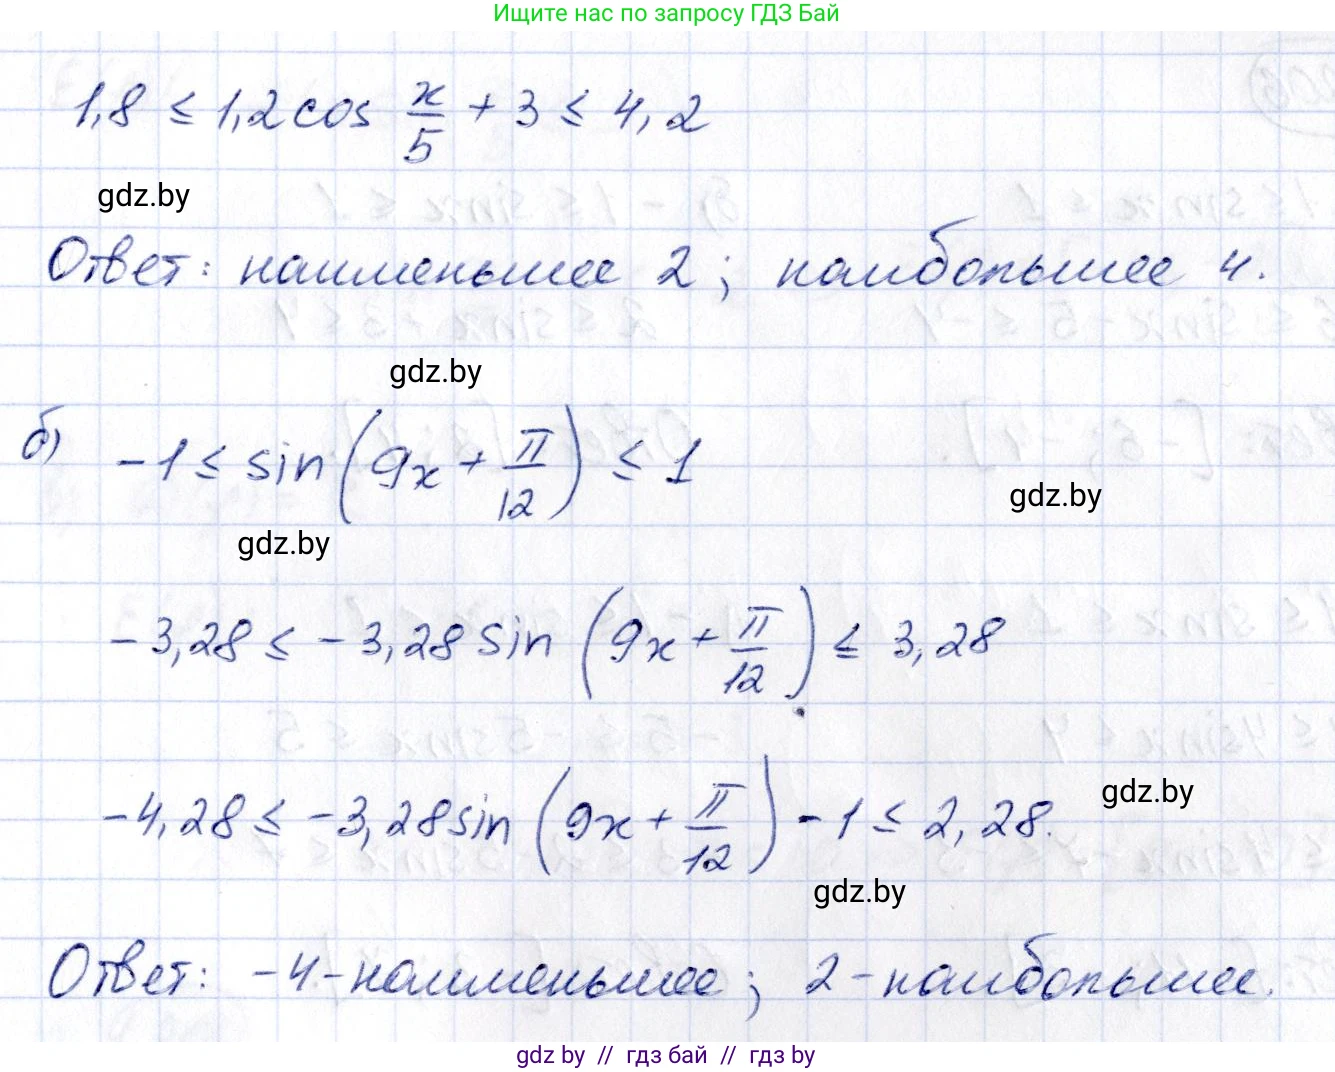 Ищите нас по запросу ГДЗ Бай
1,8 ≤ 1,2 cos x/5 + 3 ≤ 4,2
gdz.by
Ответ: наименьшее 2; наибольшее 4.
gdz.by
б) -1 ≤ sin(9x + π/12) ≤ 1
gdz.by
gdz.by
-3,28 ≤ -3,28 sin(9x + π/12) ≤ 3,28
-4,28 ≤ -3,28 sin(9x + π/12) - 1 ≤ 2,28.
gdz.by
gdz.by
Ответ: -4 - наименьшее; 2 - наибольшее.
gdz by // гдз бай // гдз by